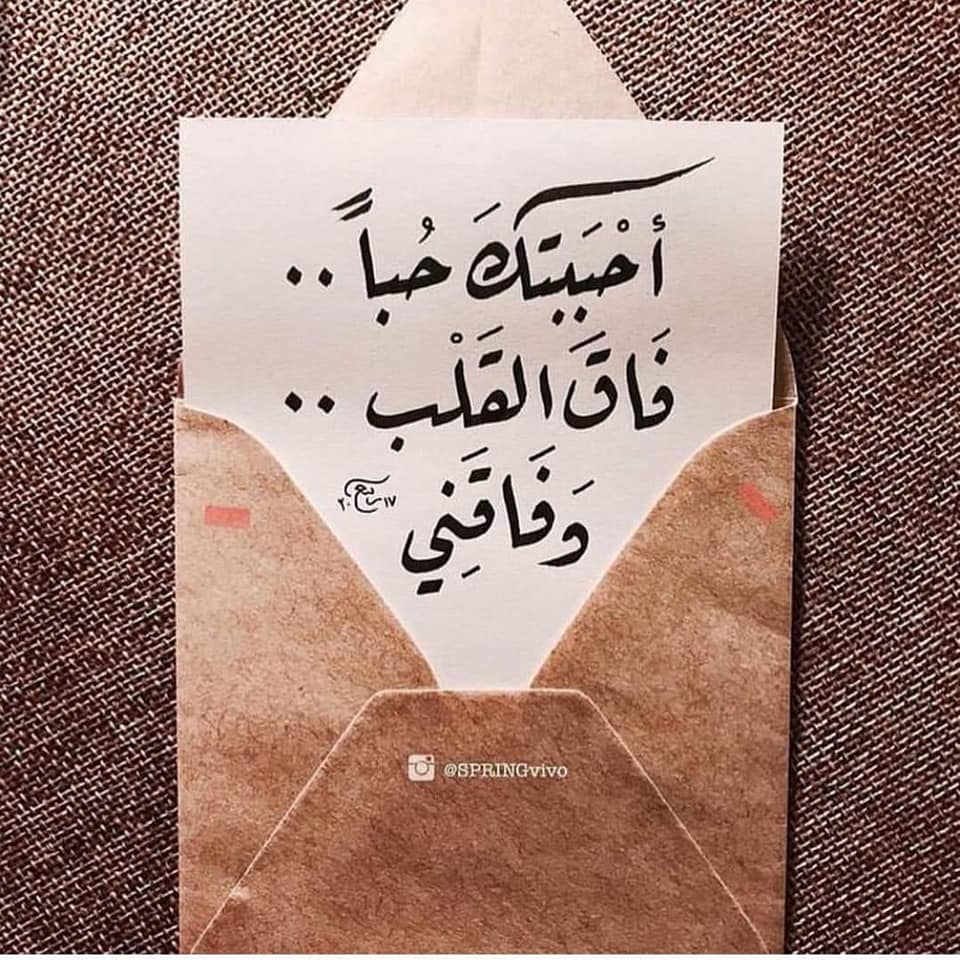 أحْبَبتكَ حُباً ..
فَاقَ القَلْب ..
وَفَاقَنِي
ربيع ٢٠١٧
@SPRINGvivo